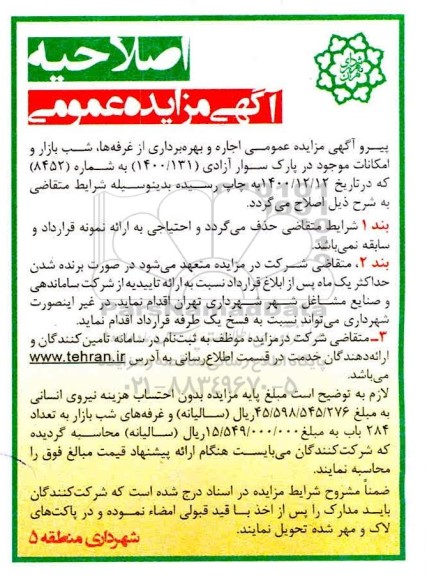 اصلاحیه
آگهی مزایده عمومی
پیرو آگهی مزایده عمومی اجاره و بهره‌برداری از غرفه‌ها، شب بازار و
امکانات موجود در پارک سوار آزادی (۱۴۰۰/۱۳۱) به شماره (۸۴۵۲)
که درتاریخ ۱۴۰۰/۱۲/۱۲به چاپ رسیده بدینوسیله شرایط متقاضی
به شرح ذیل اصلاح می‌گردد.
بند ۱ شرایط متقاضی حذف می‌گردد و احتیاجی به ارائه نمونه قرارداد و
سابقه نمی‌باشد.
بند ۲. متقاضی شرکت در مزایده متعهد می‌شود در صورت برنده شدن
حداکثر یک ماه پس از ابلاغ قرارداد نسبت به ارائه تاییدیه از شرکت ساماندهی
و صنایع مشاغل شهر شهرداری تهران اقدام نماید. در غیر اینصورت
شهرداری می‌تواند نسبت به فسخ یک طرفه قرارداد اقدام نماید.
۳ـ متقاضی شرکت درمزایده موظف به ثبت‌نام در سامانه تامین‌کنندگان و
ارائه‌دهندگان خدمت در قسمت اطلاع‌رسانی به آدرس www.tehran.ir
می‌باشد.
۰۲۱-۸۸۳۴۹۶۷۰-۵
لازم به توضیح است مبلغ پایه مزایده بدون احتساب هزینه نیروی انسانی
به مبلغ ۴۵/۵۹۸/۵۴۵/۲۷۶ریال (سالیانه) و غرفه‌های شب بازار به تعداد
۲۸۴ باب به مبلغ ۱۵/۵۴۹/۰۰۰/۰۰۰ریال (سالیانه) محاسبه گردیده
که شرکت‌کنندگان می‌بایست هنگام ارائه پیشنهاد قیمت مبالغ فوق را
محاسبه نمایند.
ضمناً مشروح شرایط مزایده در اسناد درج شده است که شرکت‌کنندگان
باید مدارک را پس از اخذ با قید قبولی امضاء نموده و در پاکت‌های
لاک و مهر شده تحویل نمایند.
شهرداری منطقه ۵